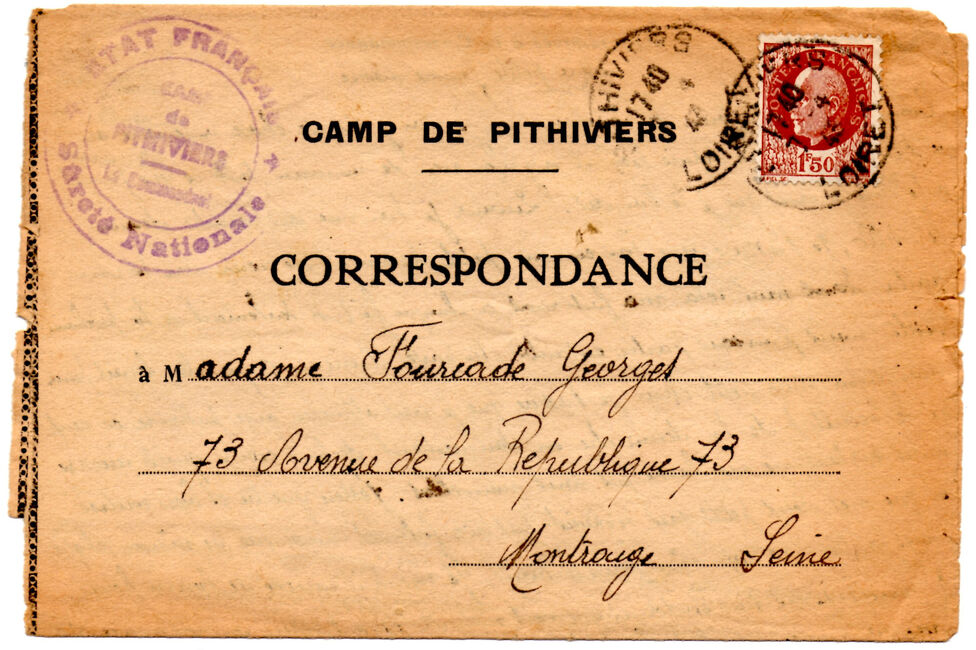 ETAT FRANÇAIS
CAMP
de
PITHIVIERS
Le Commandant
Sûreté Nationale
PITHIVIERS
17 40
LOIRET
POSTES FRANÇAISES
1F50
PITHIVIERS
17 40
LOIRET
CAMP DE PITHIVIERS
CORRESPONDANCE
à Madame Fourcade Georges
73 Avenue de la Republique 73
Montrouge Seine